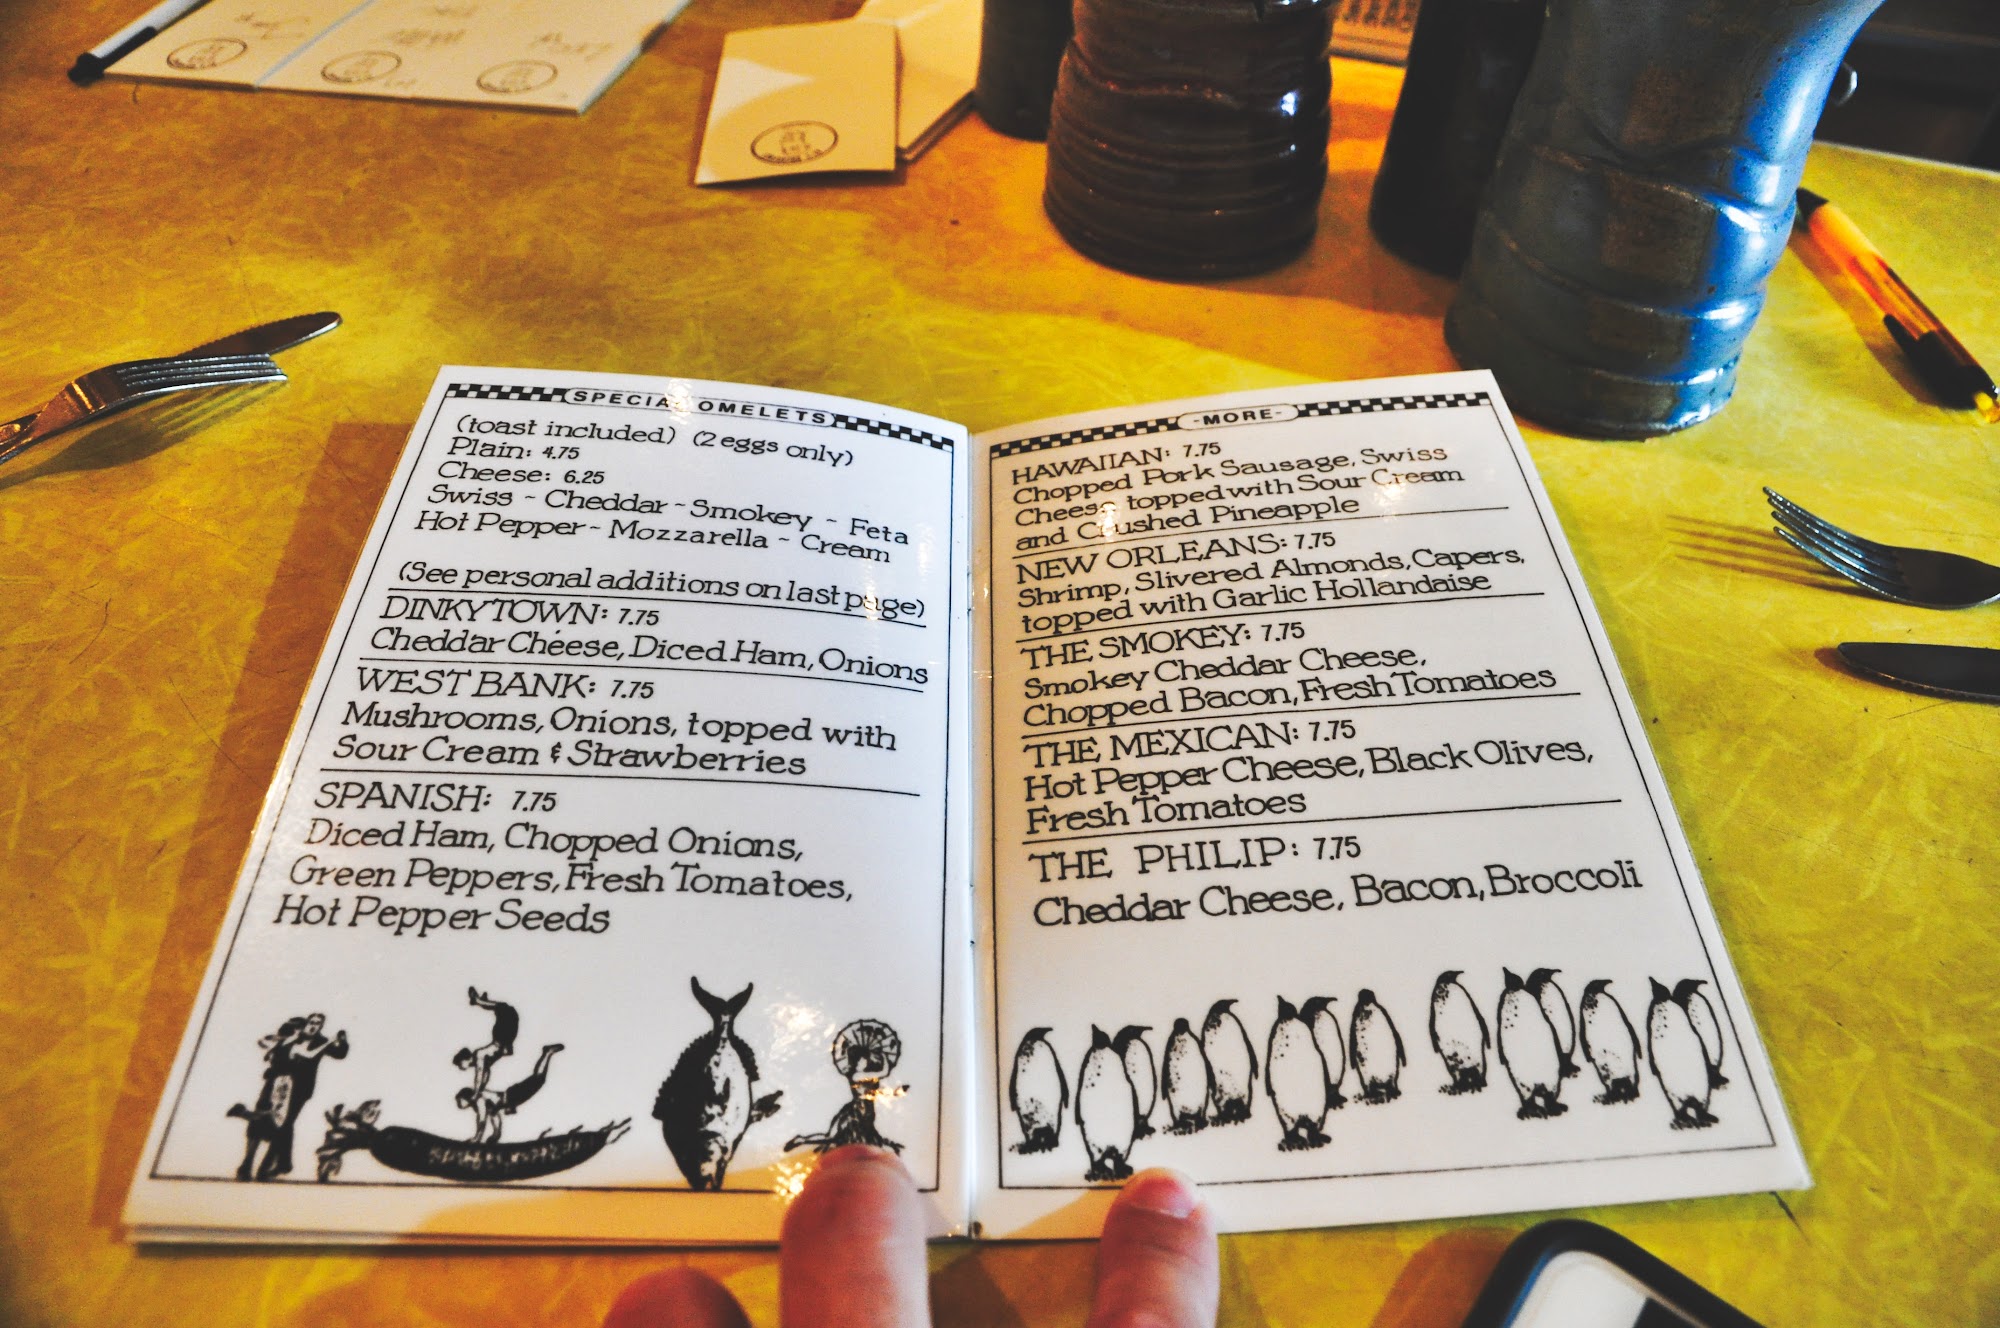 SPECIAL OMELETS
(toast included) (2 eggs only)
Plain: 4.75
Cheese: 6.25
Swiss ~ Cheddar ~ Smokey ~ Feta
Hot Pepper ~ Mozzarella ~ Cream
(See personal additions on last page)
DINKYTOWN: 7.75
Cheddar Cheese, Diced Ham, Onions
WEST BANK: 7.75
Mushrooms, Onions, topped with
Sour Cream & Strawberries
SPANISH: 7.75
Diced Ham, Chopped Onions,
Green Peppers, Fresh Tomatoes,
Hot Pepper Seeds
-MORE-
HAWAIIAN: 7.75
Chopped Pork Sausage, Swiss
Cheese topped with Sour Cream
and Crushed Pineapple
NEW ORLEANS: 7.75
Shrimp, Slivered Almonds, Capers,
topped with Garlic Hollandaise
THE SMOKEY: 7.75
Smokey Cheddar Cheese,
Chopped Bacon, Fresh Tomatoes
THE MEXICAN: 7.75
Hot Pepper Cheese, Black Olives,
Fresh Tomatoes
THE PHILIP: 7.75
Cheddar Cheese, Bacon, Broccoli